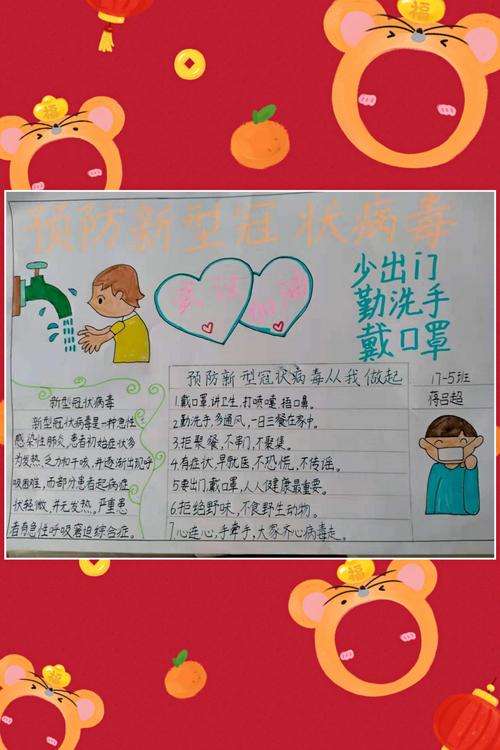 福
福
预防新型冠状病毒
武汉
加油
少出门
勤洗手
戴口罩
新型冠状病毒
新型冠状病毒是一种急性
感染性肺炎,患者初始症状多
为发热,乏力和干咳,并逐渐出现呼
吸困难,而部分患者起病症
状轻微,并无发热,严重患
者有急性呼吸窘迫综合症。
预防新型冠状病毒从我做起
1.戴口罩,讲卫生,打喷嚏捂口鼻。
2.勤洗手,多通风,一日三餐在家中。
3.拒聚餐,不串门,不聚集。
4.有症状,早就医,不恐慌,不传谣。
5.要出门,戴口罩,人人健康最重要。
6.拒绝野味,不食野生动物。
7.心连心,手牵手,大家齐心病毒走。
17-5班
蒋吕超
福
福